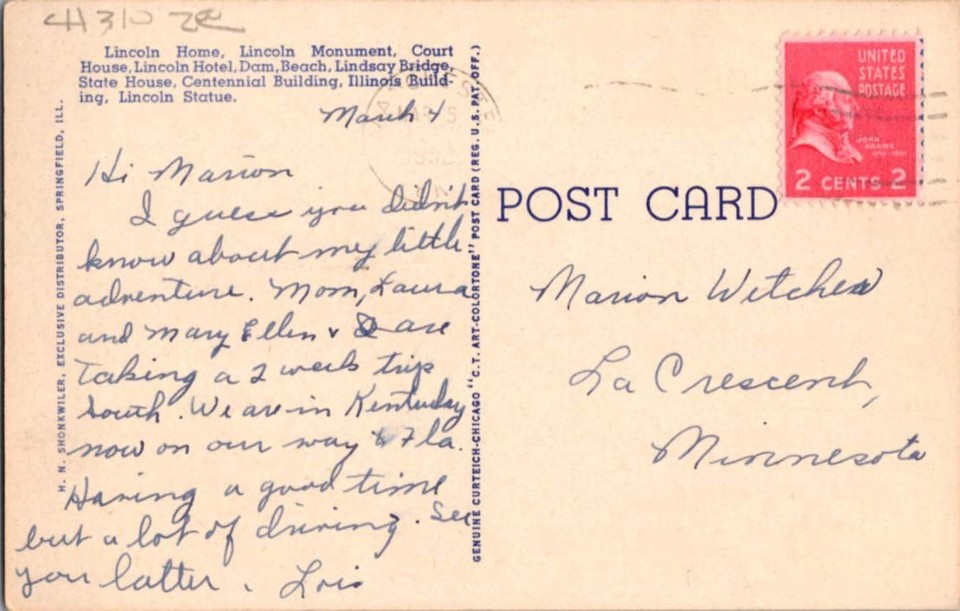 Lincoln Home, Lincoln Monument, Court
House, Lincoln Hotel, Dam, Beach, Lindsay Bridge,
State House, Centennial Building, Illinois Build-
ing, Lincoln Statue.
March 4
Hi Marion
I guess you didn't
know about my little
adventure. Mom, Laura
and Mary Ellen & are
taking a 2 week trip
South. We are in Kentucky
now on our way to Fla.
Having a good time
but a lot of driving. See
you latter. Lois
H. N. SHONKWILER, EXCLUSIVE DISTRIBUTOR, SPRINGFIELD, ILL.
GENUINE CURTEICH-CHICAGO "C.T. ART-COLORTONE" POST CARD (REG. U.S. PAT. OFF.)
POST CARD
UNITED
STATES
POSTAGE
JOHN
ADAMS
2 CENTS 2
Marion
La Crescent,
Minnesota